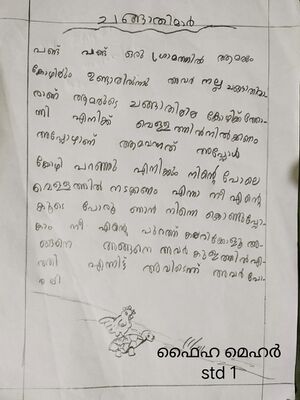 ചങ്ങാതിമാർ
പണ്ട് പണ്ട് ഒരു ഗ്രാമത്തിൽ ആമയും
കോഴിയും ഉണ്ടായിരുന്നു അവർ നല്ല ചങ്ങാതിമാ
രാണ് ആമയുടെ ചങ്ങാതിയായ കോഴിക്ക് തോ
ന്നി എനിക്ക് വെള്ളത്തിൽ നിൽക്കണം
അപ്പോഴാണ് ആമവന്നത് അപ്പോൾ
കോഴി പറഞ്ഞു എനിക്കും നിന്റെ പോലെ
വെള്ളത്തിൽ നടക്കണം എന്നാ നീ എന്റെ
കൂടെ പോരൂ ഞാൻ നിന്നെ കൊണ്ടുപ്പോ
കാം നീ എന്റെ പുറത്ത് കയറിക്കോളൂ അ
ങ്ങനെ അങ്ങനെ അവർ കുളത്തിൽ എ
ത്തി എന്നിട്ട് അവിടെന്ന് അവർ പോ
യി
ഫൈഹ മെഹർ
std 1